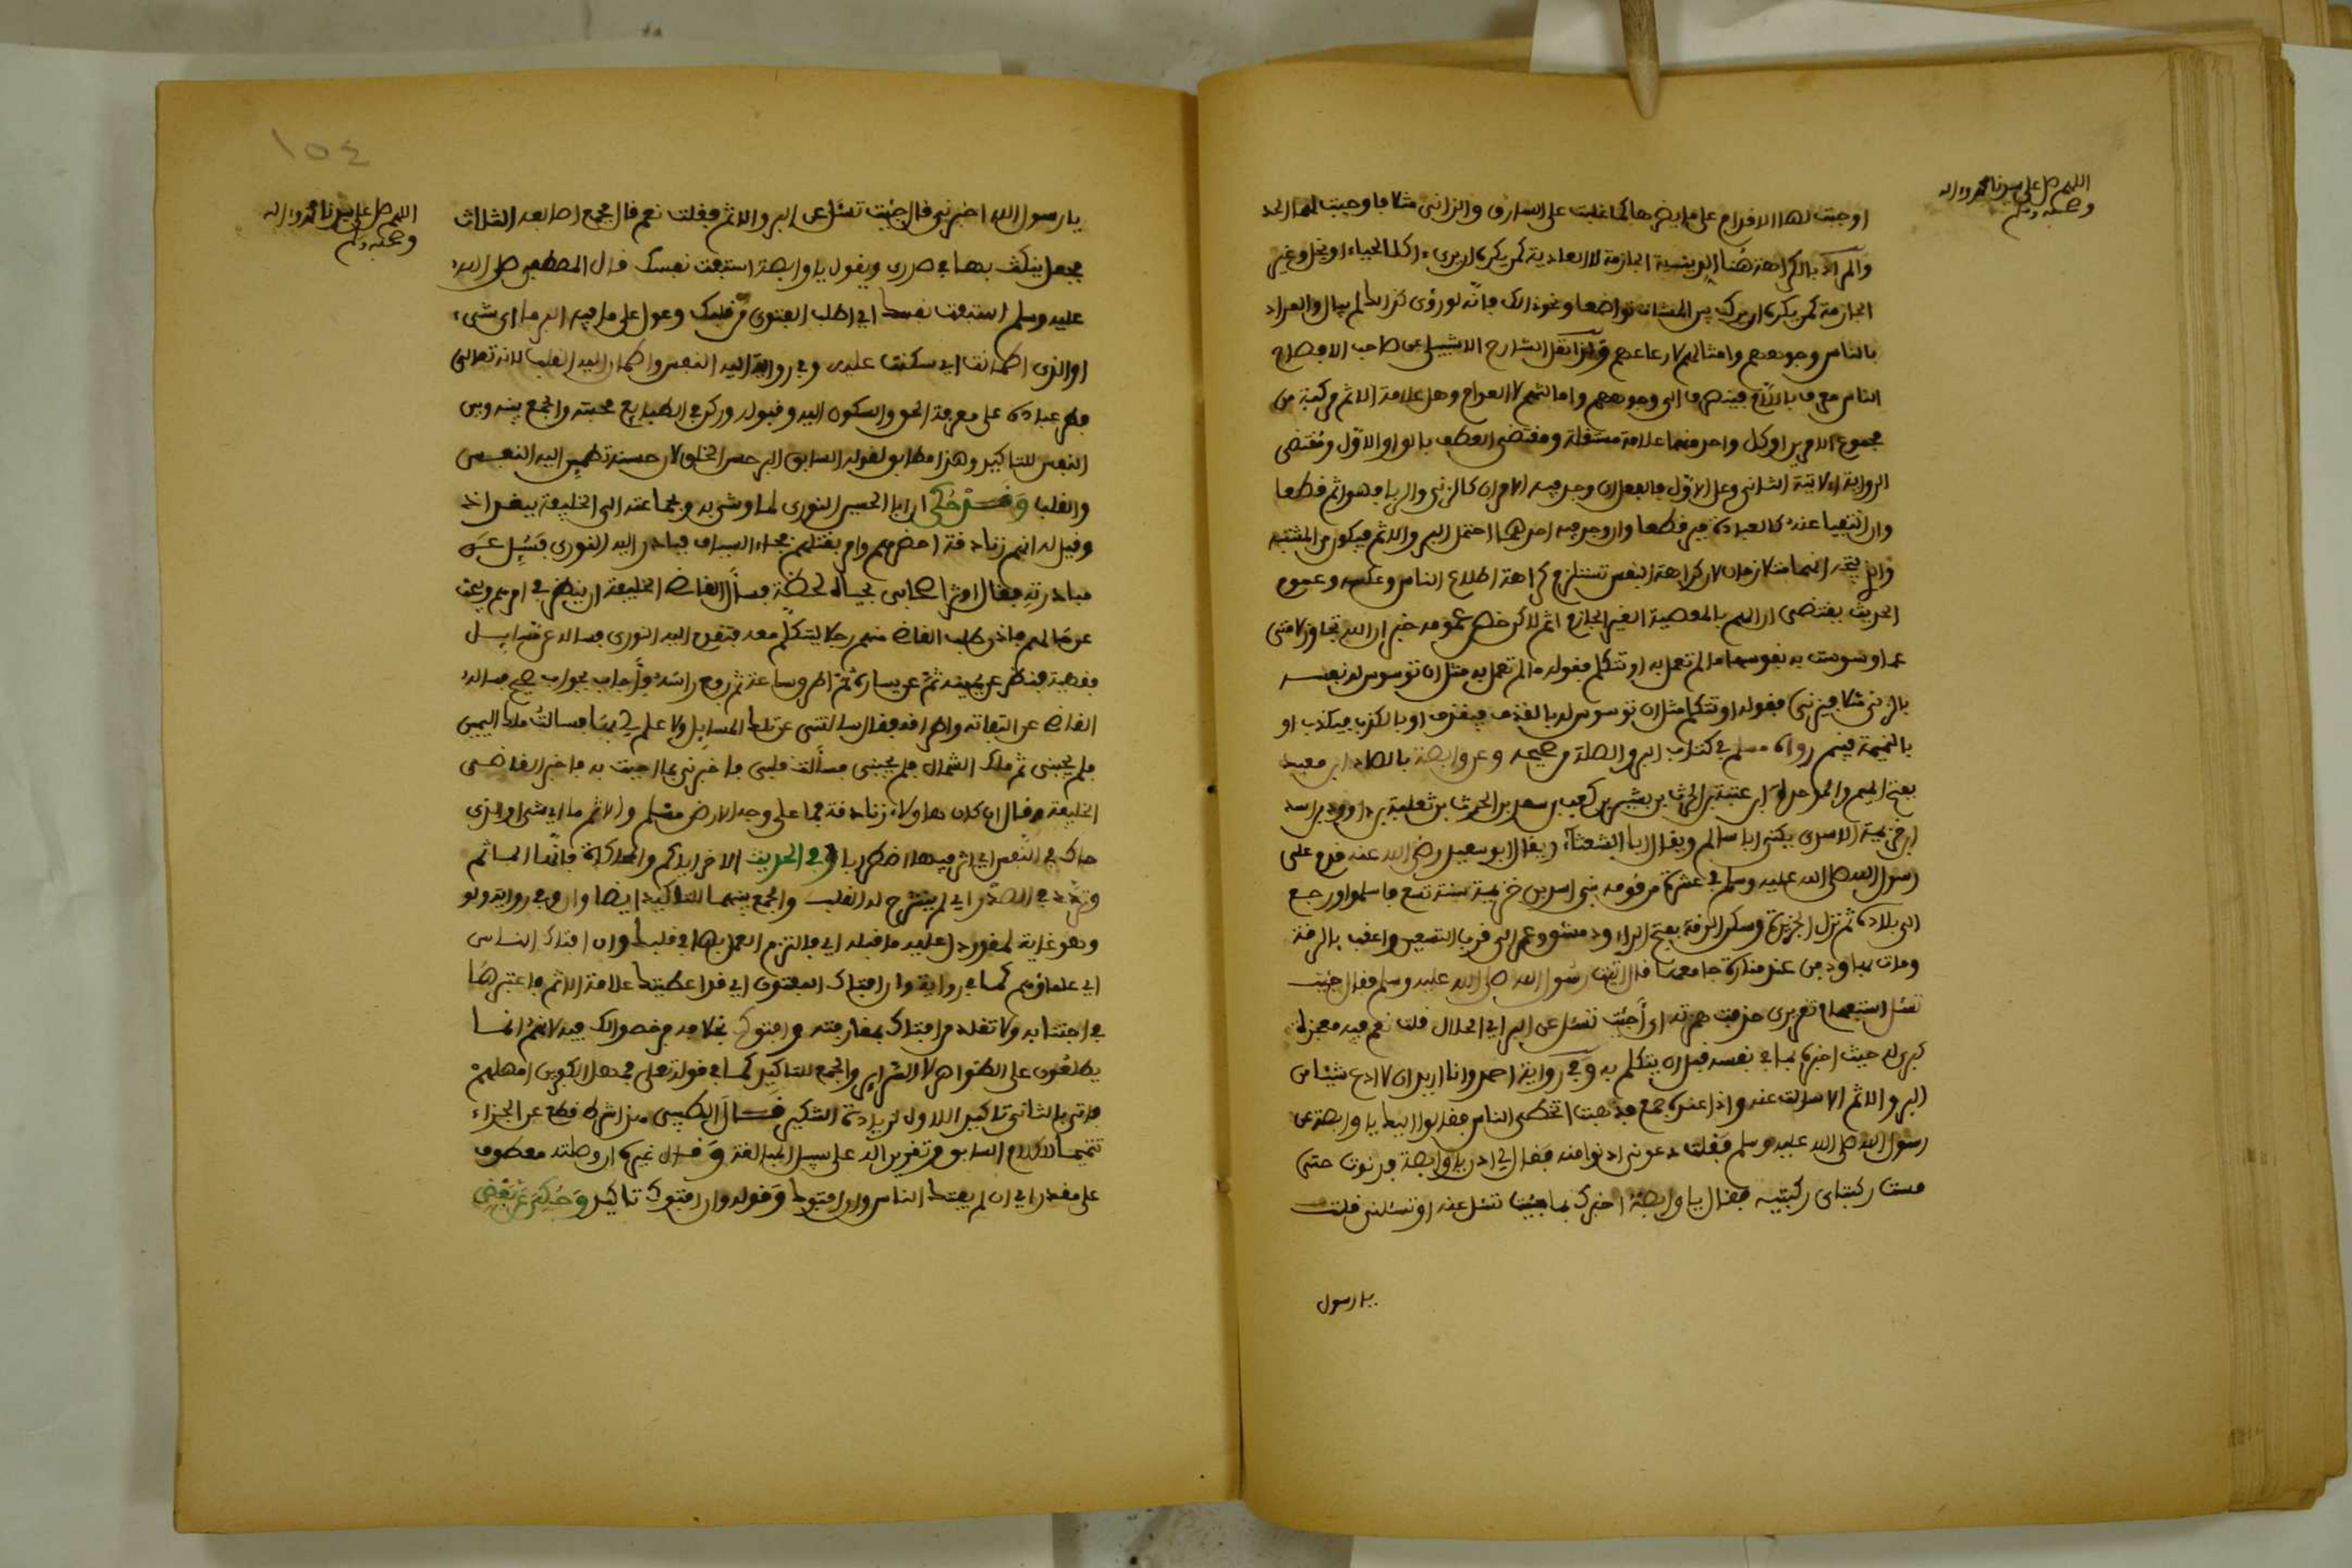 اللهم صل على سيدنا محمد وءاله
وصحبه وسلم
اوجبت لها الاقدام على ما يضرها كما غلبت على السارق والزانى مثلا فاوجبت لهما الحد
والمراد بالكراهة هنا الدينية الجازمة لا العادية كمن يكره ان يرى ءاكلا لحياء او بخل وغير
الجازمة كمن يكره ان يركب بين المشاة تواضعا ونحو ذلك فانه لو رؤى كذلك لم يبال والمراد
بالناس وجوههم وامثالهم لا رعاعهم وكذا نقل الشارح الاشبيلى عن صاحب الافصاح
الناس معرف باللام فينصرف الى وجوههم واماثلهم لا العوام وهل علامة الاثم مركبة من
مجموع الامرين او كل واحد منهما علامة مستقلة ومقتضى العطف بالواو الاول ومقتضى
الرواية الاتية الثانى وعلى الاول فالفعل ان وجد فيه الامران كالزنى والربا فهو اثم قطعا
وان انتفيا عنه كالعبادة فبر قطعا وان وجد فيه احدهما احتمل البر والاثم فيكون من المشتبه
والذى يتجه انهما متلازمان لان كراهة النفس تستلزم كراهة اطلاع الناس وعكسه وعموم
الحديث يقتضى ان الهم بالمعصية الغير الجازم اثم لاكن خص عمومه خبر ان الله تجاوز لامتى
عما وسوست به نفوسها ما لم تعمل به او تتكلم فقوله ما لم تعمل به مثل ان توسوس له نفسه
بالزنى مثلا فيزنى فقوله او تتكلم مثل ان توسوس له بالقذف فيقذف او بالكذب فيكذب او
بالنميمة فينم رواه مسلم في كتاب البر والصلة من صحيحه وعن وابصة بالصاد ابن معبد
بفتح الميم والموحدة ابن عتبة بن الحرث بن بشير بن كعب بن سعد بن الحرث بن ثعلبة بن داوود بن اسد
ابن خزيمة الاسدى يكنى ابا سالم ويقال ابا الشعثاء ويقال ابو سعيد رضى الله عنه قدم على
رسول الله صلى الله عليه وسلم في عشرة من قومه بنى اسد بن خزيمة سنة تسع فاسلموا ورجع
الى بلاده ثم نزل الجزيرة وسكن الرقة بفتح الراء ودمشق وعمر الى قرب التسعين واعقب بالرقة
ومات بها ودفن عند منارة جامعها قال اتيت رسول الله صلى الله عليه وسلم فقال جئت
تسئل استفهام تقريرى حذفت همزته اى أجئت تسئل عن البر اى الحلال قلت نعم فيه معجزة
كبرى له حيث اخبره بما في نفسه قبل ان يتكلم به وفي رواية احمد وانا اريد ان لا ادع شيئا من
البر والاثم الا سالت عنه واذا عنده جمع فذهبت اتخطى الناس فقالوا اليك يا وابصة عن
رسول الله صلى الله عليه وسلم فقلت دعونى ادنوا منه فقال لى ادن يا وابصة فدنوت حتى
مست ركبتاى ركبتيه فقال يا وابصة اخبرك بما جئت تسئل عنه او تسئلنى قلت
يا رسول
١٥٤
اللهم صل على سيدنا محمد وءاله
وصحبه وسلم
يا رسول الله اخبرنى قال جئت تسئل عن البر والاثم فقلت نعم قال فجمع اصابعه الثلاث
فجعل ينكث بها في صدرى ويقول يا وابصة استفت نفسك قال المصطفى صلى الله
عليه وسلم استفت نفسك اى اطلب الفتوى من قلبك وعول على ما فيه البر ما اى شىء
او الذى اطمانت اى سكنت عليه وفي رواية اليه النفس واطمان اليه القلب لانه تعالى
فطر عباده على معرفة الحق والسكون اليه وقبوله وركز في الطبايع محبته والجمع بينه وبين
النفس للتاكيد وهذا مطابق لقوله السابق البر حسن الخلق لان حسنه تطمئن اليه النفس
والقلب وقد حكى ان ابا الحسين النورى لما وشى به وبجماعته الى الخليفة ببغداد
وقيل له انهم زنادقة احضرهم وامر بقتلهم فجاء السياف فبادر اليه النورى فسئل عن
مبادرته فقال اوثر اصحابى بحياة لحظة فسأل القاضى الخليفة ان ينظر في امرهم ويبحث
عن حالهم فاذن طلب القاضى منهم رجلا ليتكلم معه فتقدم اليه النورى فساله عن مسايل
فقهية فنظر عن يمينه ثم عن يساره ثم اطرق ساعة ثم رفع راسه وأجاب بجواب صحيح فساله
القاضى عن التفاته واطراقه فقال سالتنى عن تلك المسايل ولا علم لى بها فسالت ملك اليمين
فلم يجبنى ثم ملك الشمال فلم يجبنى فسألت قلبى فاخبرنى بما اجبت به فاخبر القاضى
الخليفة وقال ان كان هاولاء زنادقة فما على وجه الارض مسلم والاثم ما اى شىء او الذى
حاك في النفس اى اثر فيها اضطرابا وفي الحديث الاخر اياكم والحكاكات فانها المآثم
وتردد في الصدر اى لم ينشرح له القلب والجمع بينهما للتاكيد ايضا وان وفي رواية ولو
وهو غاية لمقدر دل عليه ما قبله اى فالتزم العمل بما في قلبك وان افتاك الناس
اى علماؤهم كما في رواية وان افتاك المفتون اى قد اعطيتك علامة الاثم فاعتبرها
في اجتنابه ولا تقلد من افتاك بمقارفته وافتوك بخلافه فرخصوا لك فيه لانهم انما
يطلعون على الظواهر لا السراير والجمع للتاكيد كما في قوله تعالى فمهل الكافرين امهلهم
فاتى بالثانى تاكيدا للاول لزيادة التسكين قال الطيبى هذا شرط قطع عن الجزاء
تتميما للكلام السابق وتقريرا له على سبيل المبالغة وقال غيره ان وصلته معطوف
على مقدر اى ان لم يفتك الناس وان افتوك وقوله وان افتوك تاكيد وحكى عن بعض